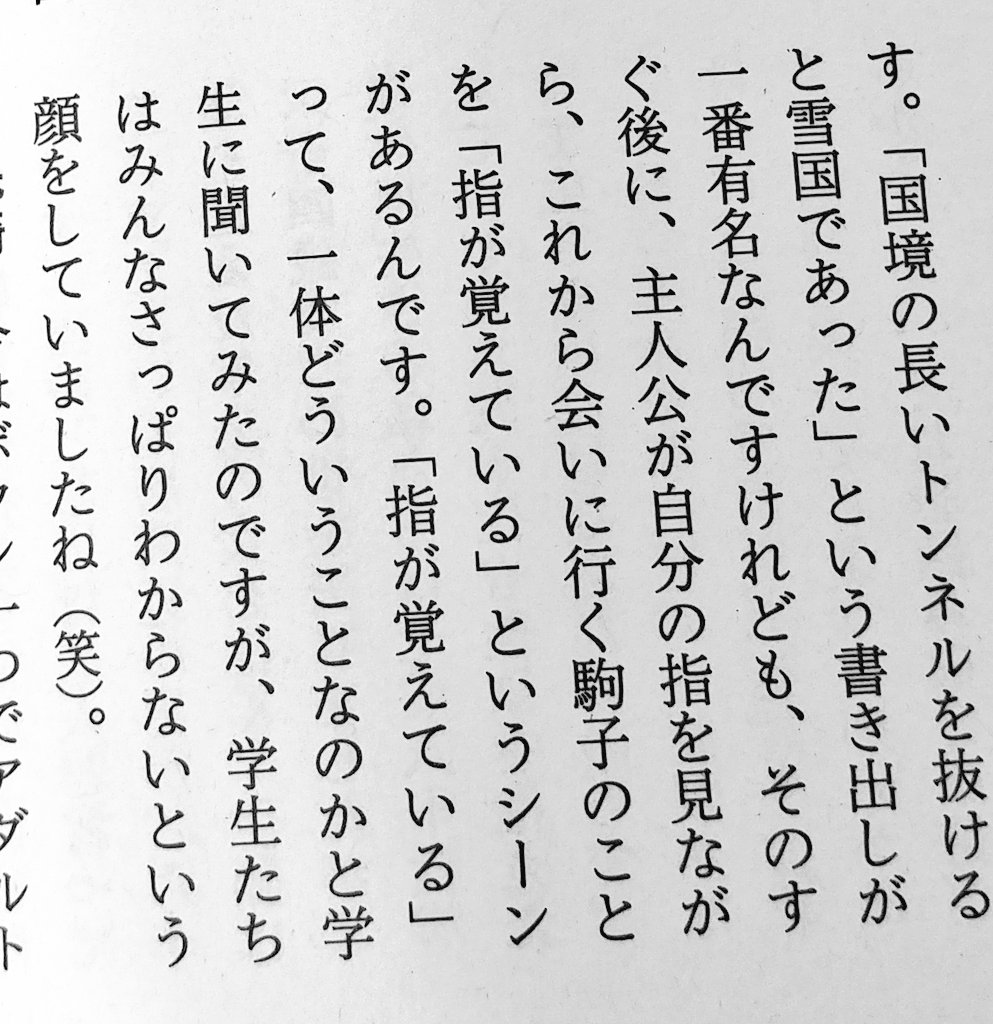 す。「国境の長いトンネルを抜ける
と雪国であった」という書き出しが
一番有名なんですけれども、そのす
ぐ後に、主人公が自分の指を見なが
ら、これから会いに行く駒子のこと
を「指が覚えている」というシーン
があるんです。「指が覚えている」
って、一体どういうことなのかと学
生に聞いてみたのですが、学生たち
はみんなさっぱりわからないという
顔をしていましたね（笑）。